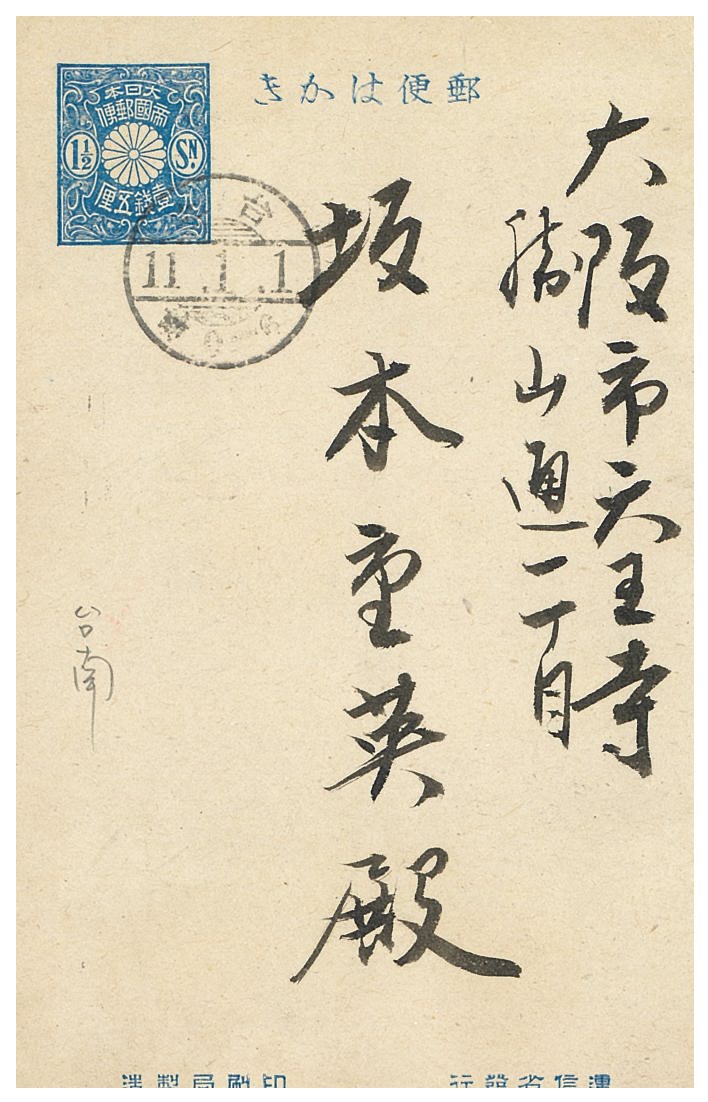 郵便はかき
大日本
帝國郵便
1½
SN.
壹錢五厘
台
11.1.1
大阪市天王寺
勝山通二丁目
坂本重英殿
台南
逓信省發行
印刷局製造